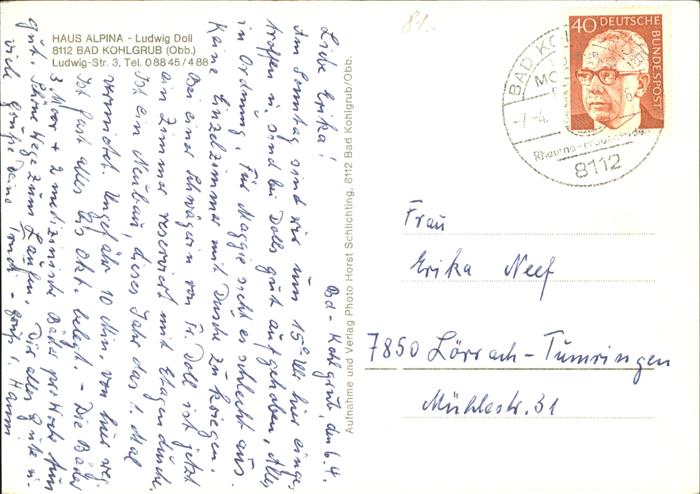 HAUS ALPINA - Ludwig Doll
8112 BAD KOHLGRUB (Obb.)
Ludwig-Str. 3, Tel. 0 88 45 / 4 88
81.-
Bd-Kohlgrub, den 6.4.
Liebe Erika!
Am Sonntag sind wir um 15°° Uhr hier einge-
troffen u. sind bei Dolls gut aufgehoben, Alles
in Ordnung. Für Maggie sieht es schlecht aus.
Keine Einzelzimmer mit Dusche zu kriegen.
Bei einer Schwägerin von Fr. Doll ist jetzt
ein Zimmer reserviert mit Etagendusche.
Ist ein Neubau, dieses Jahr das 1. Mal
vermietet. Ungefähr 10 Min. von hier weg.
Ist fast alles bis Okt. belegt. - Die Bäder
3 Moor + 2 medizinische Bäder pro Woche tun
gut. Schöne Wege zum Laufen. Dir alles Gute u.
viele Grüße Deine
Hanni
Aufnahme und Verlag Photo Horst Schlichting, 8112 Bad Kohlgrub/Obb.
40 DEUTSCHE
BUNDESPOST
BAD KO
MO
-7.-4.
8112
Frau
Erika Neef
7850 Lörrach-Tumringen
Mühlestr. 31